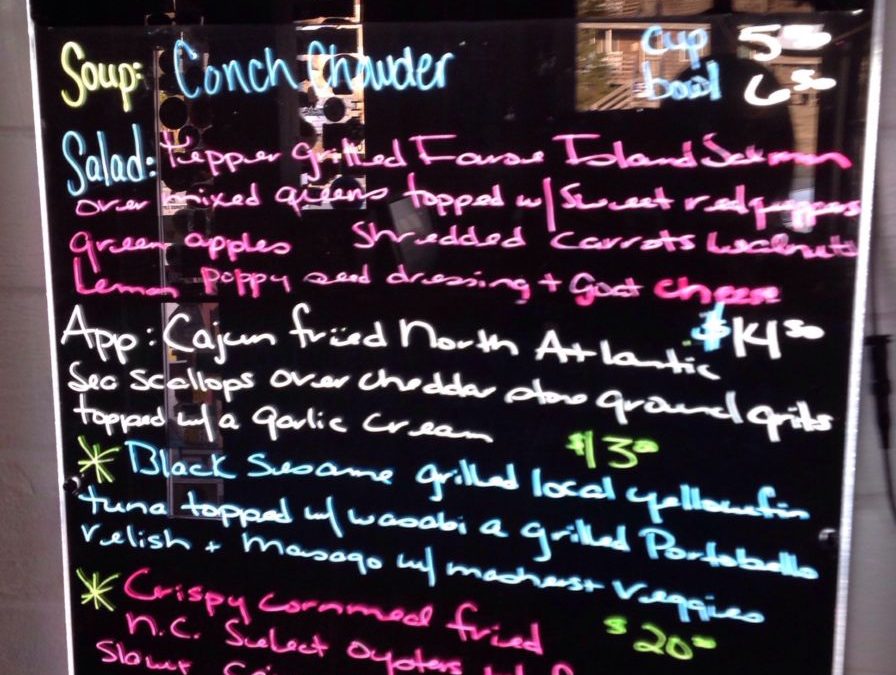 Soup: Conch Chowder cup 5⁵⁰
bowl 6⁵⁰
Salad: Pepper grilled Faroe Island Salmon
over mixed greens topped w/ Sweet red peppers
green apples Shredded Carrots Walnuts
Lemon Poppy seed dressing + Goat cheese
$14⁵⁰
App: Cajun fried North Atlantic
Sea Scallops over cheddar stone ground grits
topped w/ a garlic cream
$13⁰⁰
* Black Sesame grilled local yellowfin
tuna topped w/ wasabi a grilled Portobello
relish + Masago w/ veggies
* Crispy cornmeal fried
$20⁰⁰
N.C. Select Oysters